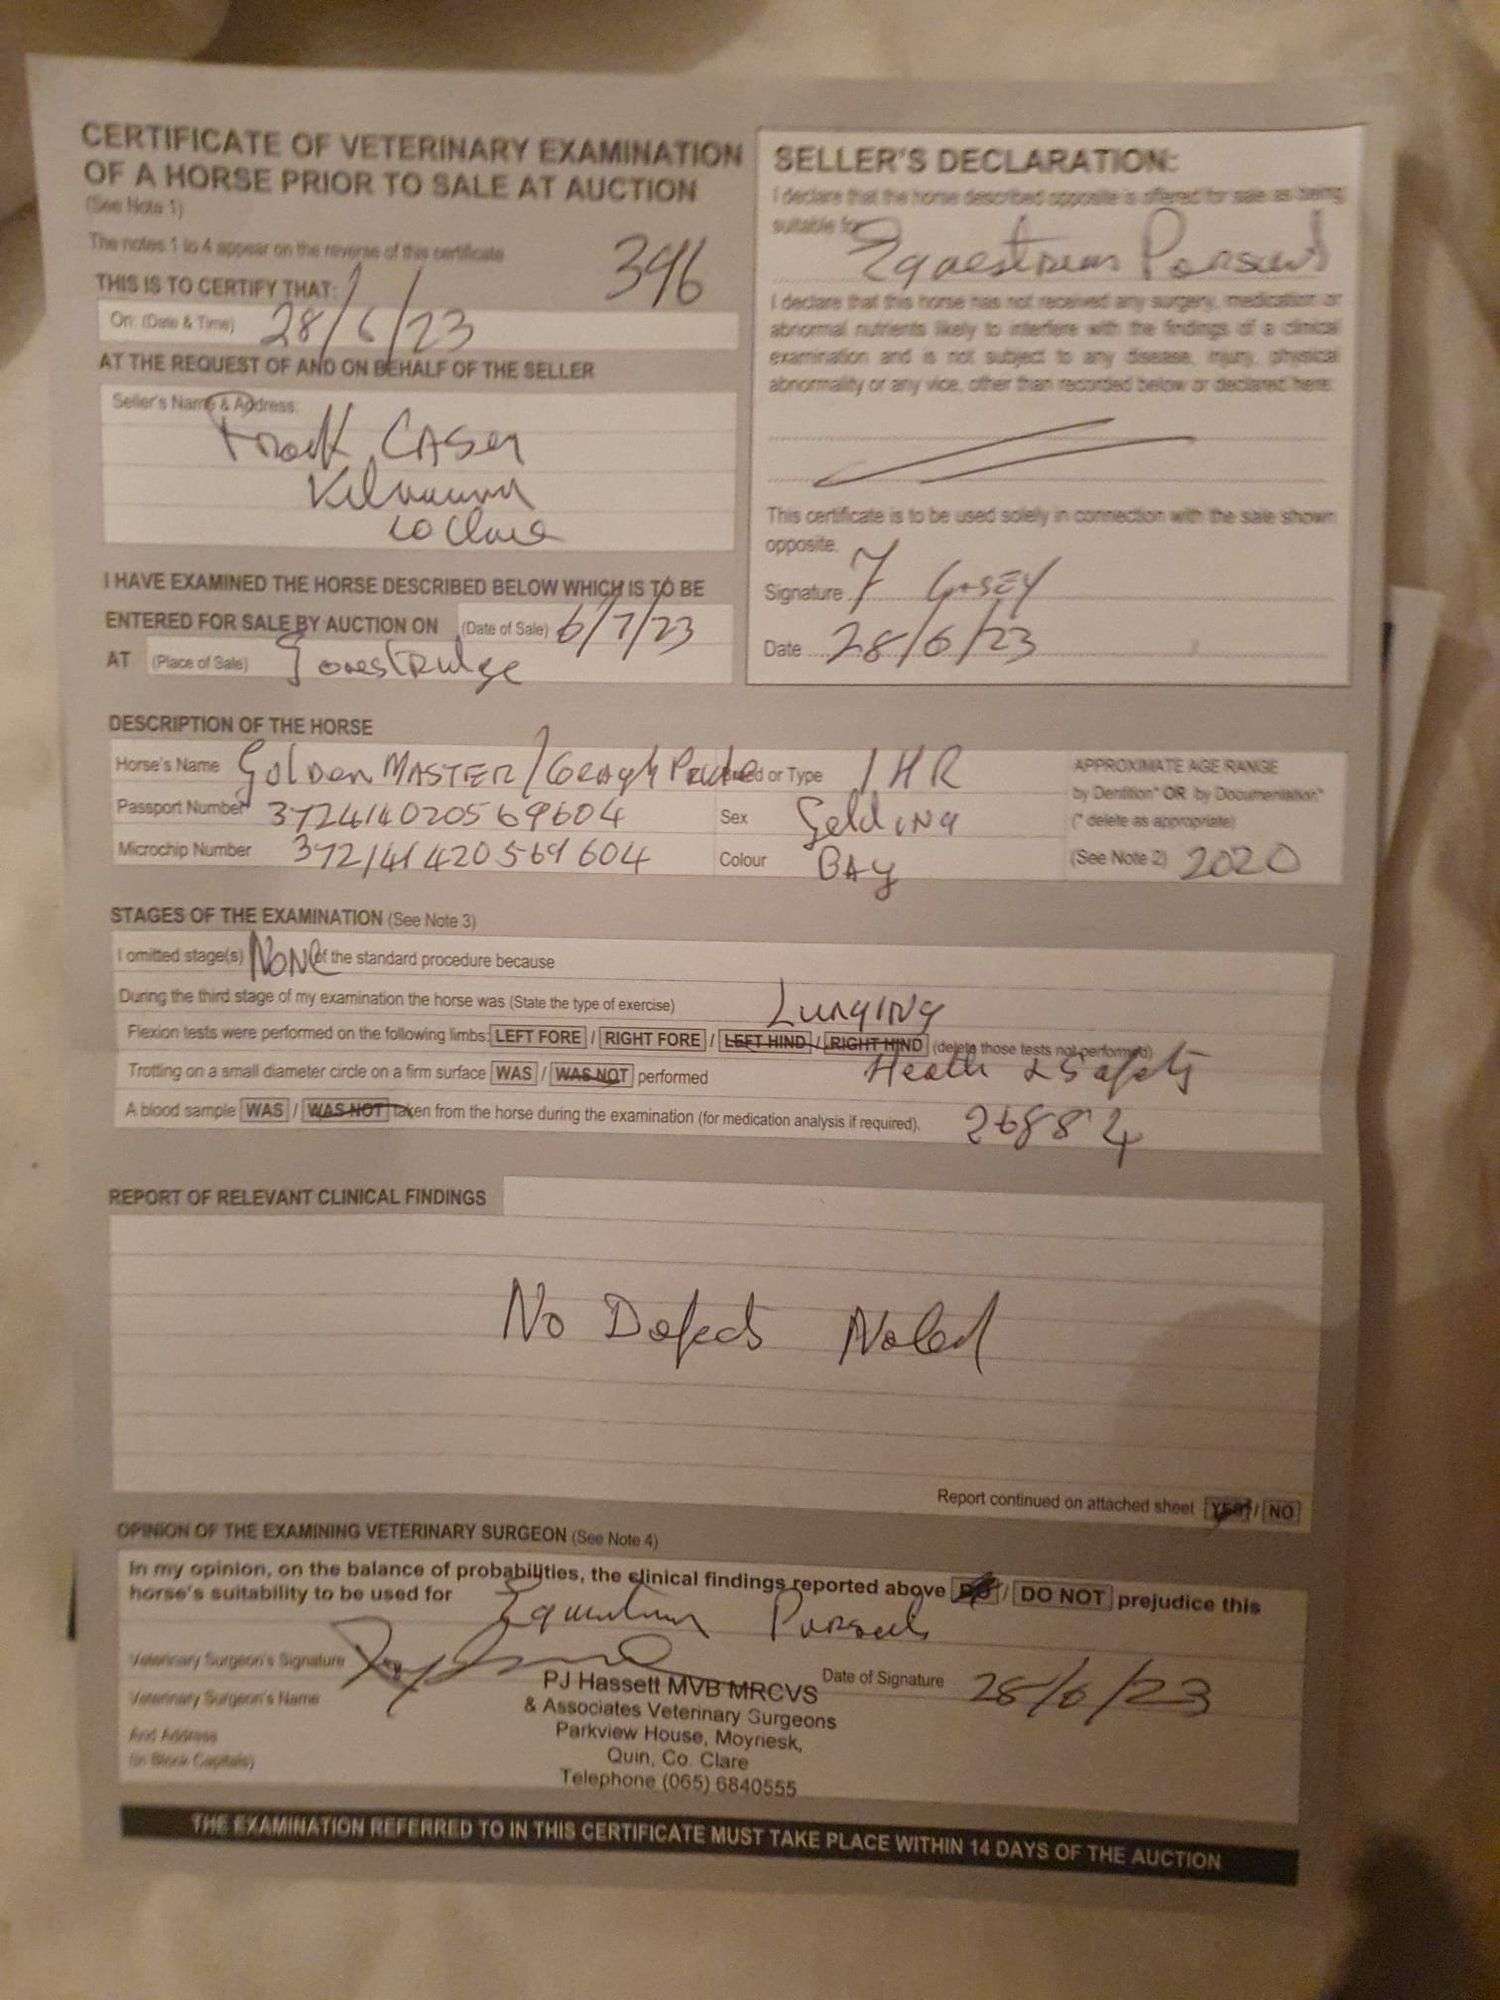 CERTIFICATE OF VETERINARY EXAMINATION
OF A HORSE PRIOR TO SALE AT AUCTION
(See Note 1)
The notes 1 to 4 appear on the reverse of this certificate
396
THIS IS TO CERTIFY THAT:
On: (Date & Time) 28/6/23
AT THE REQUEST OF AND ON BEHALF OF THE SELLER
Seller's Name & Address:
Frank CASEY
Co Clare
I HAVE EXAMINED THE HORSE DESCRIBED BELOW WHICH IS TO BE
ENTERED FOR SALE BY AUCTION ON (Date of Sale) 6/7/23
AT (Place of Sale)
SELLER'S DECLARATION:
I declare that the horse described opposite is offered for sale as being
suitable for
Equestrian Pursuits
I declare that this horse has not received any surgery, medication or
abnormal nutrients likely to interfere with the findings of a clinical
examination and is not subject to any disease, injury, physical
abnormality or any vice, other than recorded below or declared here:
This certificate is to be used solely in connection with the sale shown
opposite.
Signature F CASEY
Date 28/6/23
DESCRIPTION OF THE HORSE
Horse's Name Golden MASTER / Breed or Type IHR
Passport Number 372414020569604 Sex Gelding
Microchip Number Colour BAY
APPROXIMATE AGE RANGE
by Dentition* OR by Documentation*
(* delete as appropriate)
(See Note 2) 2020
STAGES OF THE EXAMINATION (See Note 3)
I omitted stage(s) NONE of the standard procedure because
During the third stage of my examination the horse was (State the type of exercise) Lunging
Flexion tests were performed on the following limbs: LEFT FORE / RIGHT FORE / LEFT HIND / RIGHT HIND (delete those tests not performed)
Health & Safety
Trotting on a small diameter circle on a firm surface WAS / WAS NOT performed
A blood sample WAS / WAS NOT taken from the horse during the examination (for medication analysis if required). 26884
REPORT OF RELEVANT CLINICAL FINDINGS
No Defects Noted
Report continued on attached sheet YES / NO
OPINION OF THE EXAMINING VETERINARY SURGEON (See Note 4)
In my opinion, on the balance of probabilities, the clinical findings reported above DO / DO NOT prejudice this
horse's suitability to be used for Equestrian Pursuits
Veterinary Surgeon's Signature
Date of Signature 28/6/23
Veterinary Surgeon's Name
And Address
(in Block Capitals)
PJ Hassett MVB MRCVS
& Associates Veterinary Surgeons
Parkview House, Moyriesk,
Quin, Co. Clare
Telephone (065) 6840555
THE EXAMINATION REFERRED TO IN THIS CERTIFICATE MUST TAKE PLACE WITHIN 14 DAYS OF THE AUCTION